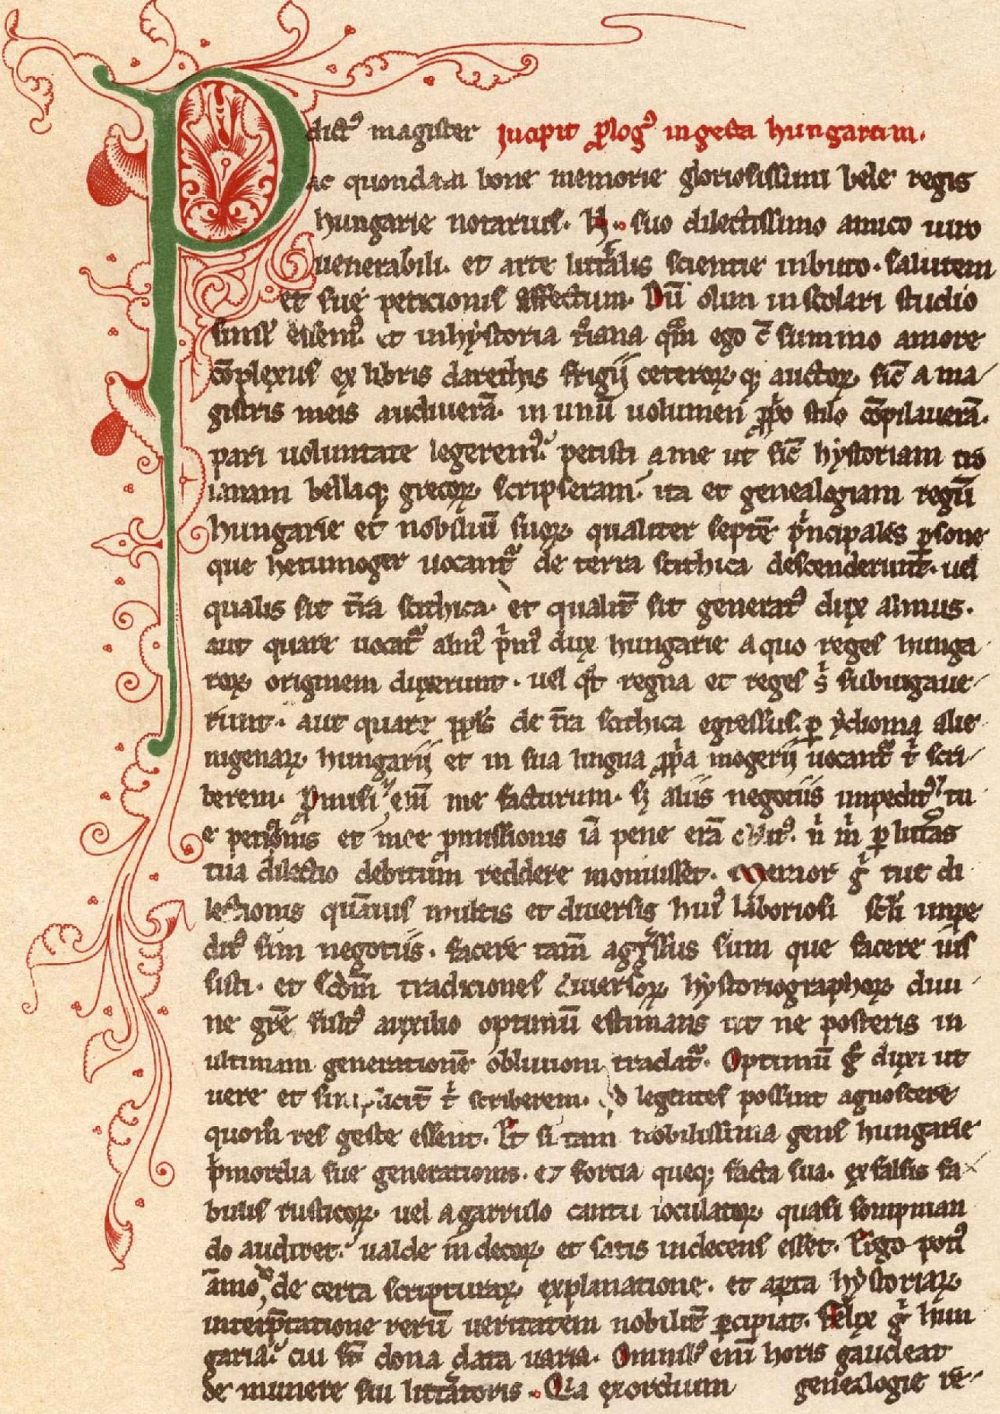 P dict⁹ magister Incipit ꝓlog⁹ in gesta hungarum.
ac quondam bone memorie gloriosissimi bele regis
hungarie notarius. N. suo dilectissimo amico uiro
uenerabili. et arte litt̾alis scientie inbuto. salutem
et sue peticionis affectum. Dū olim in scolari studio
simul essem⁹. et in hystoria t̾oiana qm̄ ego cū summo amore
cōplexus ex libris darethis frigij ceteroꝝ q; auctoꝝ sic̄ a ma
gistris meis audiuerā. in unū uolumen ꝓp̾o stilo cōpilauerā.
pari uoluntate legerem⁹. petisti a me ut sic̄ hystoriam tro
ianam bellaq; grecoꝝ scripseram. ita et genealogiam regū
hungarie et nobiliū suoꝝ qualiter septē p̾ncipales ꝑsone
que hetumoger uocant̾ de terra scithica descenderunt. uel
qualis sit tr̄a scithica. et qualit̾ sit generat⁹ dux almus.
aut quare uocat̾ alm⁹ p̾m⁹ dux hungarie a quo reges hunga
roꝝ originem duxerunt. uel qt̾ regna et reges s̾ subiugaue-
runt. aut quare ppl̄s de tr̄a scithica egressus. ꝑ ydioma alie
nigenaꝝ hungarij et in sua lingua ꝓp̾a mogerij uocant̾ t̾ scri-
berem. Promisi eni̅ me facturum. sꝫ aliis negotiis impedit⁹. tu
e peticōnis et mee ꝓmissionis iā pene erā oblit⁹. n̾ m̾ ꝑ litt̾as
tua dilectio debitum reddere monuisset. Memor g̾ tue di
lectionis quāuis multis et diuersis hui⁹ laboriosi scl̄i impe
dit⁹ sim negotiis. facere tam̄ aggr̾ssus sum que facere ius
sisti. et scd̄m traditiones diuersoꝝ hystoriographoꝝ diui-
ne grē fult⁹ auxilio optimū estimans ut ne posteris in
ultimam generationē obliuioni tradat̾. Optimū g̾ duxi ut
uere et simplicit̾ t̾ scriberem. qd̄ legentes possint agnoscere
quom̄ res geste essent. Et si tam nobilissima gens hungarie
p̾mordia sue generationis. et fortia queq; facta sua. ex falsis fa-
bulis rusticoꝝ. uel a garrulo cantu ioculatoꝝ quasi sompnian
do audiret. ualde indecoꝝ et satis indecens esset. Ergo poti⁹
āmo de certa scripturaꝝ explanatione. et aꝑta hystoriaꝝ
interp̄tatione rerū ueritatem nobilit̾ ꝑcipiat. Felix g̾ hun
garia. cui st̄ dona data uaria. Omnib⁹ eni̅ horis gaudeat
de munere sui litt̾atoris. Q̾a exordium genealogie re-